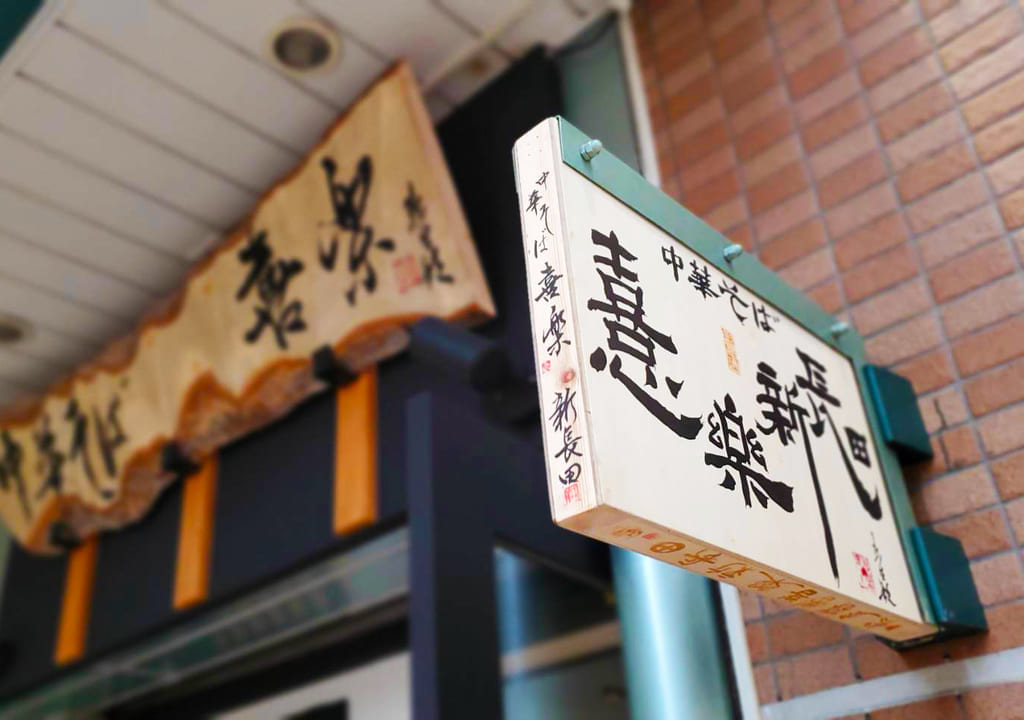 中華そば 喜樂
中華そば 喜樂 新長田
中華そば
喜樂
新長田